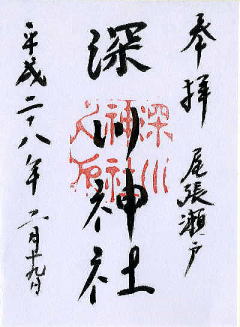 奉拝 尾張瀬戸
深川神社
平成二十八年 六月十九日
深川
神社
之印